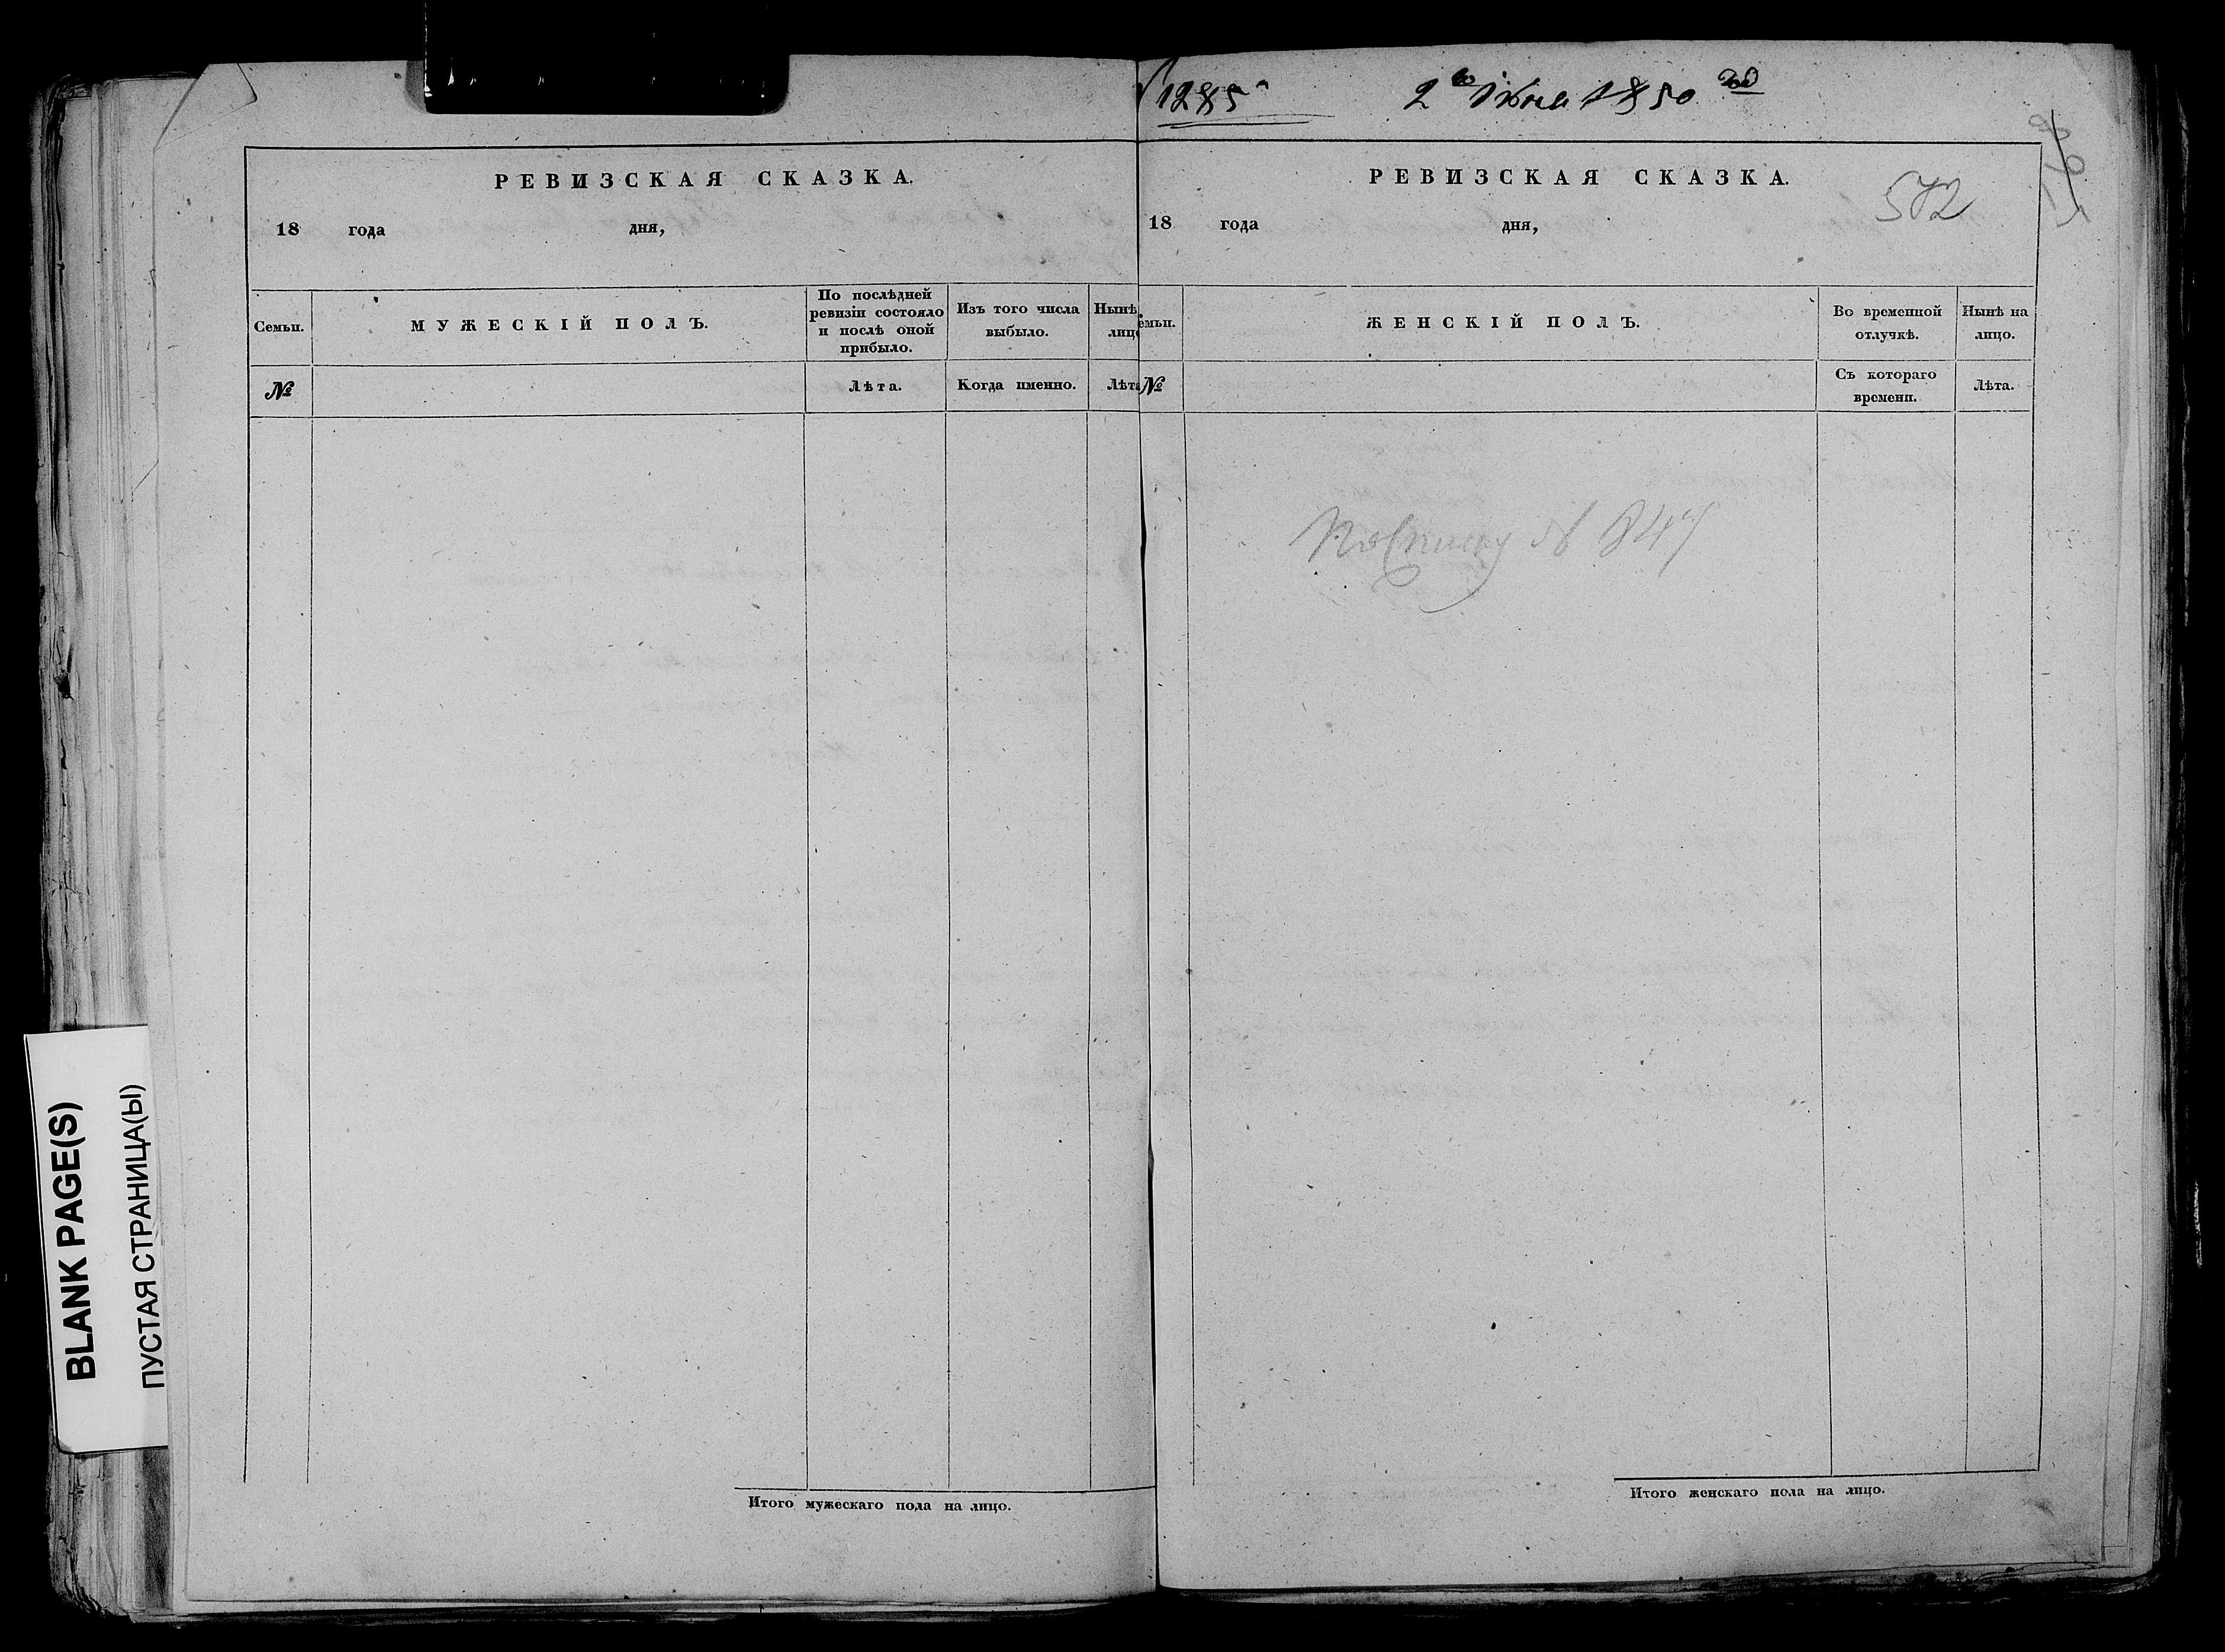 1285
2го Июня 1850 года
РЕВИЗСКАЯ СКАЗКА.
18 года дня,
Семьи.
МУЖЕСКІЙ ПОЛЪ.
По послѣдней
ревизіи состояло
и послѣ оной
прибыло.
Изъ того числа
выбыло.
Нынѣ
лицо
№
Лѣта.
Когда именно.
Лѣта
Итого мужескаго пола на лицо.
РЕВИЗСКАЯ СКАЗКА.
572
18 года дня,
емьи.
ЖЕНСКІЙ ПОЛЪ.
Во временной
отлучкѣ.
Нынѣ на
лицо.
№
Съ котораго
времени.
Лѣта.
По списку №
Итого женскаго пола на лицо.
BLANK PAGE(S)
ПУСТАЯ СТРАНИЦА(Ы)